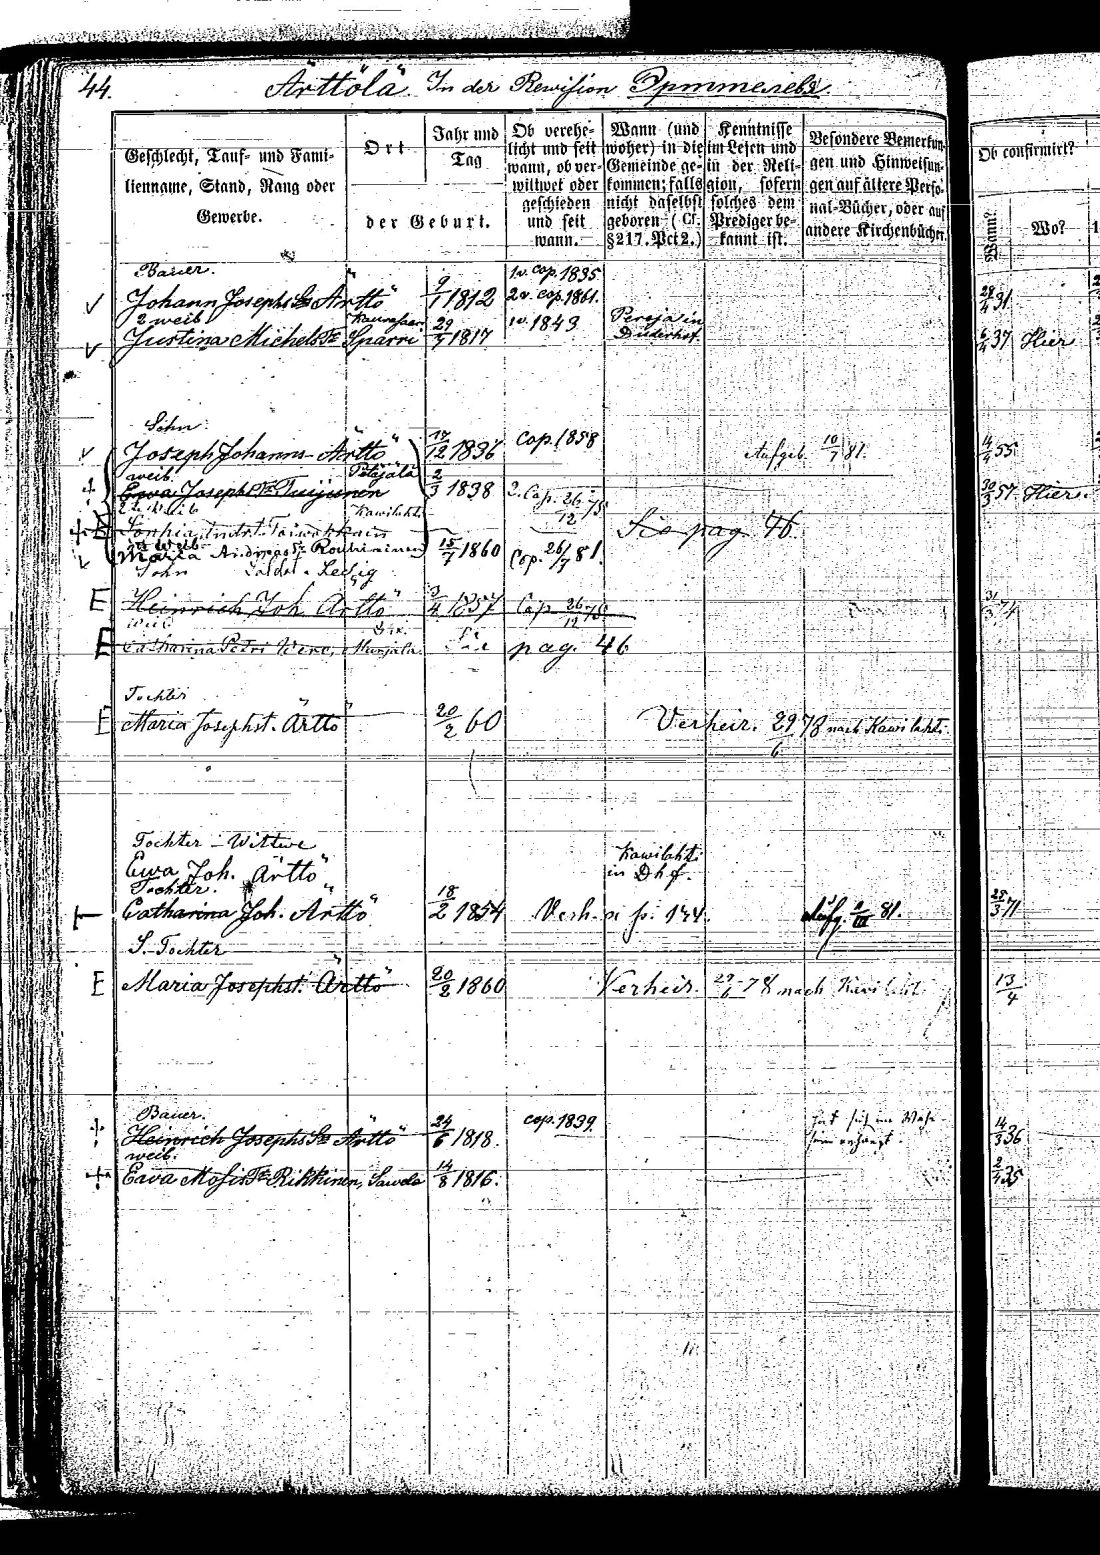 44.
Ärttölä In der Revision Эрттелевя
Geschlecht, Tauf- und Familienname, Stand, Rang oder Gewerbe.
Ort
Jahr und Tag
der Geburt.
Ob verehelicht und seit wann, ob verwittwet oder geschieden und seit wann.
Wann (und woher) in die Gemeinde gekommen; falls nicht daselbst geboren (Cf. §217. Pct 2.)
Kenntnisse im Lesen und in der Religion, sofern solches dem Prediger bekannt ist.
Besondere Bemerkungen und Hinweisungen auf ältere Personal-Bücher, oder auf andere Kirchenbücher.
Ob confirmirt?
Wann?
Wo?
Bauer. 1 v. cop. 1835
Johann Josephs S. Ärttö 9/1 1812 2 v. cop. 1861. 28/4 31
2 weib w. 1843 Peroja in Duderhof
Justina Michels Tr Sparri 29/7 1817 6/4 37 Hier
Sohn:
Joseph Johanns Ärttö 17/12 1836 Cop. 1858 Aufgeb. 10/7 81. 14/4 55
weib. Petäjälä
Ewa Joseph Tr Tuijunen 2/3 1838 2. Cop. 26/12 75 30/3 57 Hier.
2te Weib Kawilahti
Sophia Andr. T. Toiwokkain Sie pag. 46
Maria Andreas Tr Rouhiainen 15/7 1860 Cop. 26/7 81.
Sohn Soldat - Ledig
Heinrich Joh. Ärttö 3/4 1857 Cop 26/12 75 31/3 74
weib
Catharina Petri Munjala. pag. 46
Tochter
Maria Josephst. Ärttö 20/2 60 Verheir. 29/6 78 nach Kawilahti.
Tochter - Wittwe
Ewa Joh. Ärttö Kawilahti in Dhf.
Tochter.
Catharina Joh. Ärttö 18/2 1854 Verh. a p. 144. Aufg. 1/III 81. 28/3 71
S. Tochter
Maria Josephst. Ärttö 20/2 1860 Verheir. 29/6 78 nach Kavilaht. 13/4
Bauer.
Heinrich Josephs S. Ärttö 24/6 1818. cop. 1839. 14/3 36
weib.
Ewa Mosis Tr Rikkinen, Sawela 14/8 1816. 2/4 35